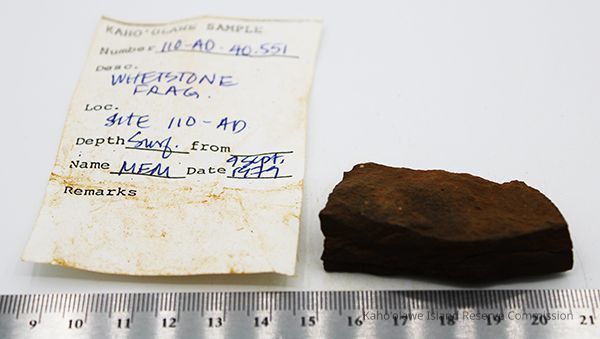 KAHO'OLAWE SAMPLE
Number 110-AD-40.551
Desc.
WHETSTONE
FRAG.
Loc.
SITE 110-AD
Depth Surf. from
Name MEM Date 9 Sept. 1979
Remarks
9 10 11 12 13 14 15 16 17 18 19 20 21
Kaho'olawe Island Reserve Commission